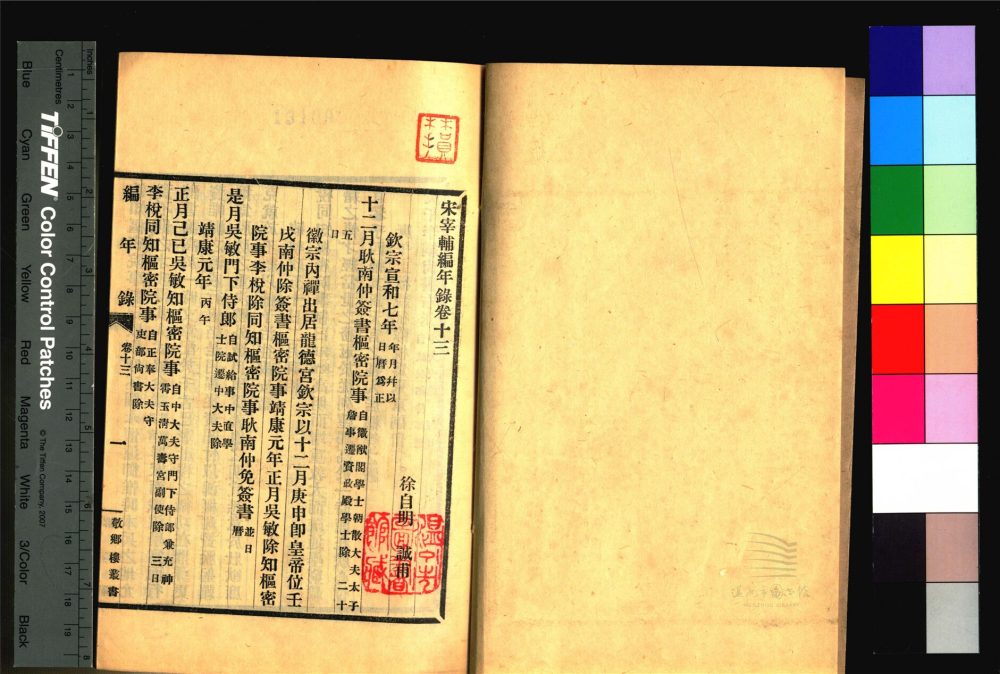 宋宰輔編年錄卷十三
徐自明 誠甫
欽宗宣和七年 年月幷以日曆爲正
十二月耿南仲簽書樞密院事 自徽猷閣學士朝散大夫太子詹事遷資政殿學士除 二十五日
徽宗內禪出居龍德宮欽宗以十二月庚申卽皇帝位壬
戌南仲除簽書樞密院事靖康元年正月吳敏除知樞密
院事李梲除同知樞密院事耿南仲免簽書 並日曆
是月吳敏門下侍郎 自試給事中直學士院遷中大夫除
靖康元年 丙午
正月己巳吳敏知樞密院事 自中大夫守門下侍郎兼充神霄玉淸萬壽宮副使除 三日
李梲同知樞密院事 自正奉大夫守吏部尙書除
編年錄 卷十三 一 敬鄉樓叢書
Inches
Centimetres
TIFFEN Color Control Patches
© The Tiffen Company, 2007
Blue Cyan Green Yellow Red Magenta White 3/Color Black
1 2 3 4 5 6 7 8
1 2 3 4 5 6 7 8 9 10 11 12 13 14 15 16 17 18 19
WENZHOU LIBRARY